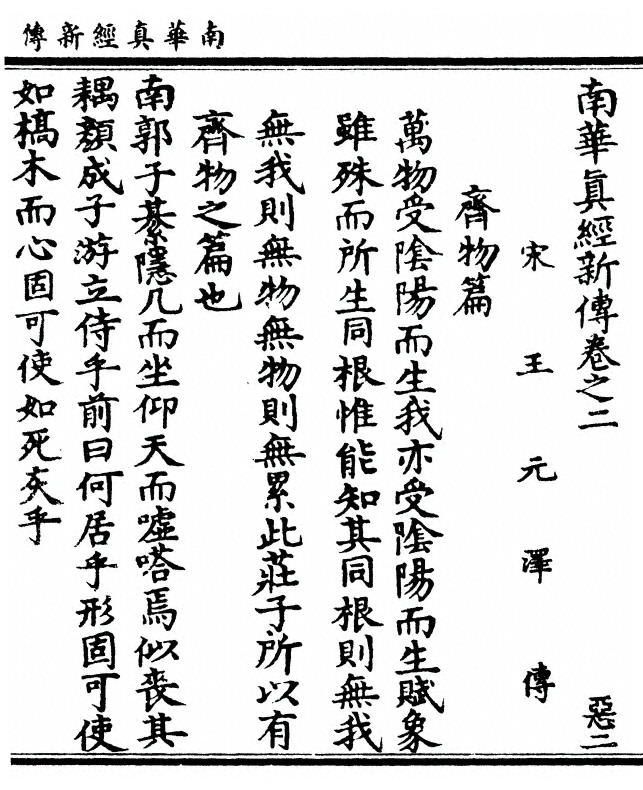 南華真經新傳
南華眞經新傳卷之二 惡二
宋王元澤傳
齊物篇
萬物受陰陽而生我亦受陰陽而生賦象
雖殊而所生同根惟能知其同根則無我
無我則無物無物則無累此莊子所以有
齊物之篇也
南郭子綦隱几而坐仰天而噓嗒焉似喪其
耦顏成子游立侍乎前曰何居乎形固可使
如槁木而心固可使如死灰乎